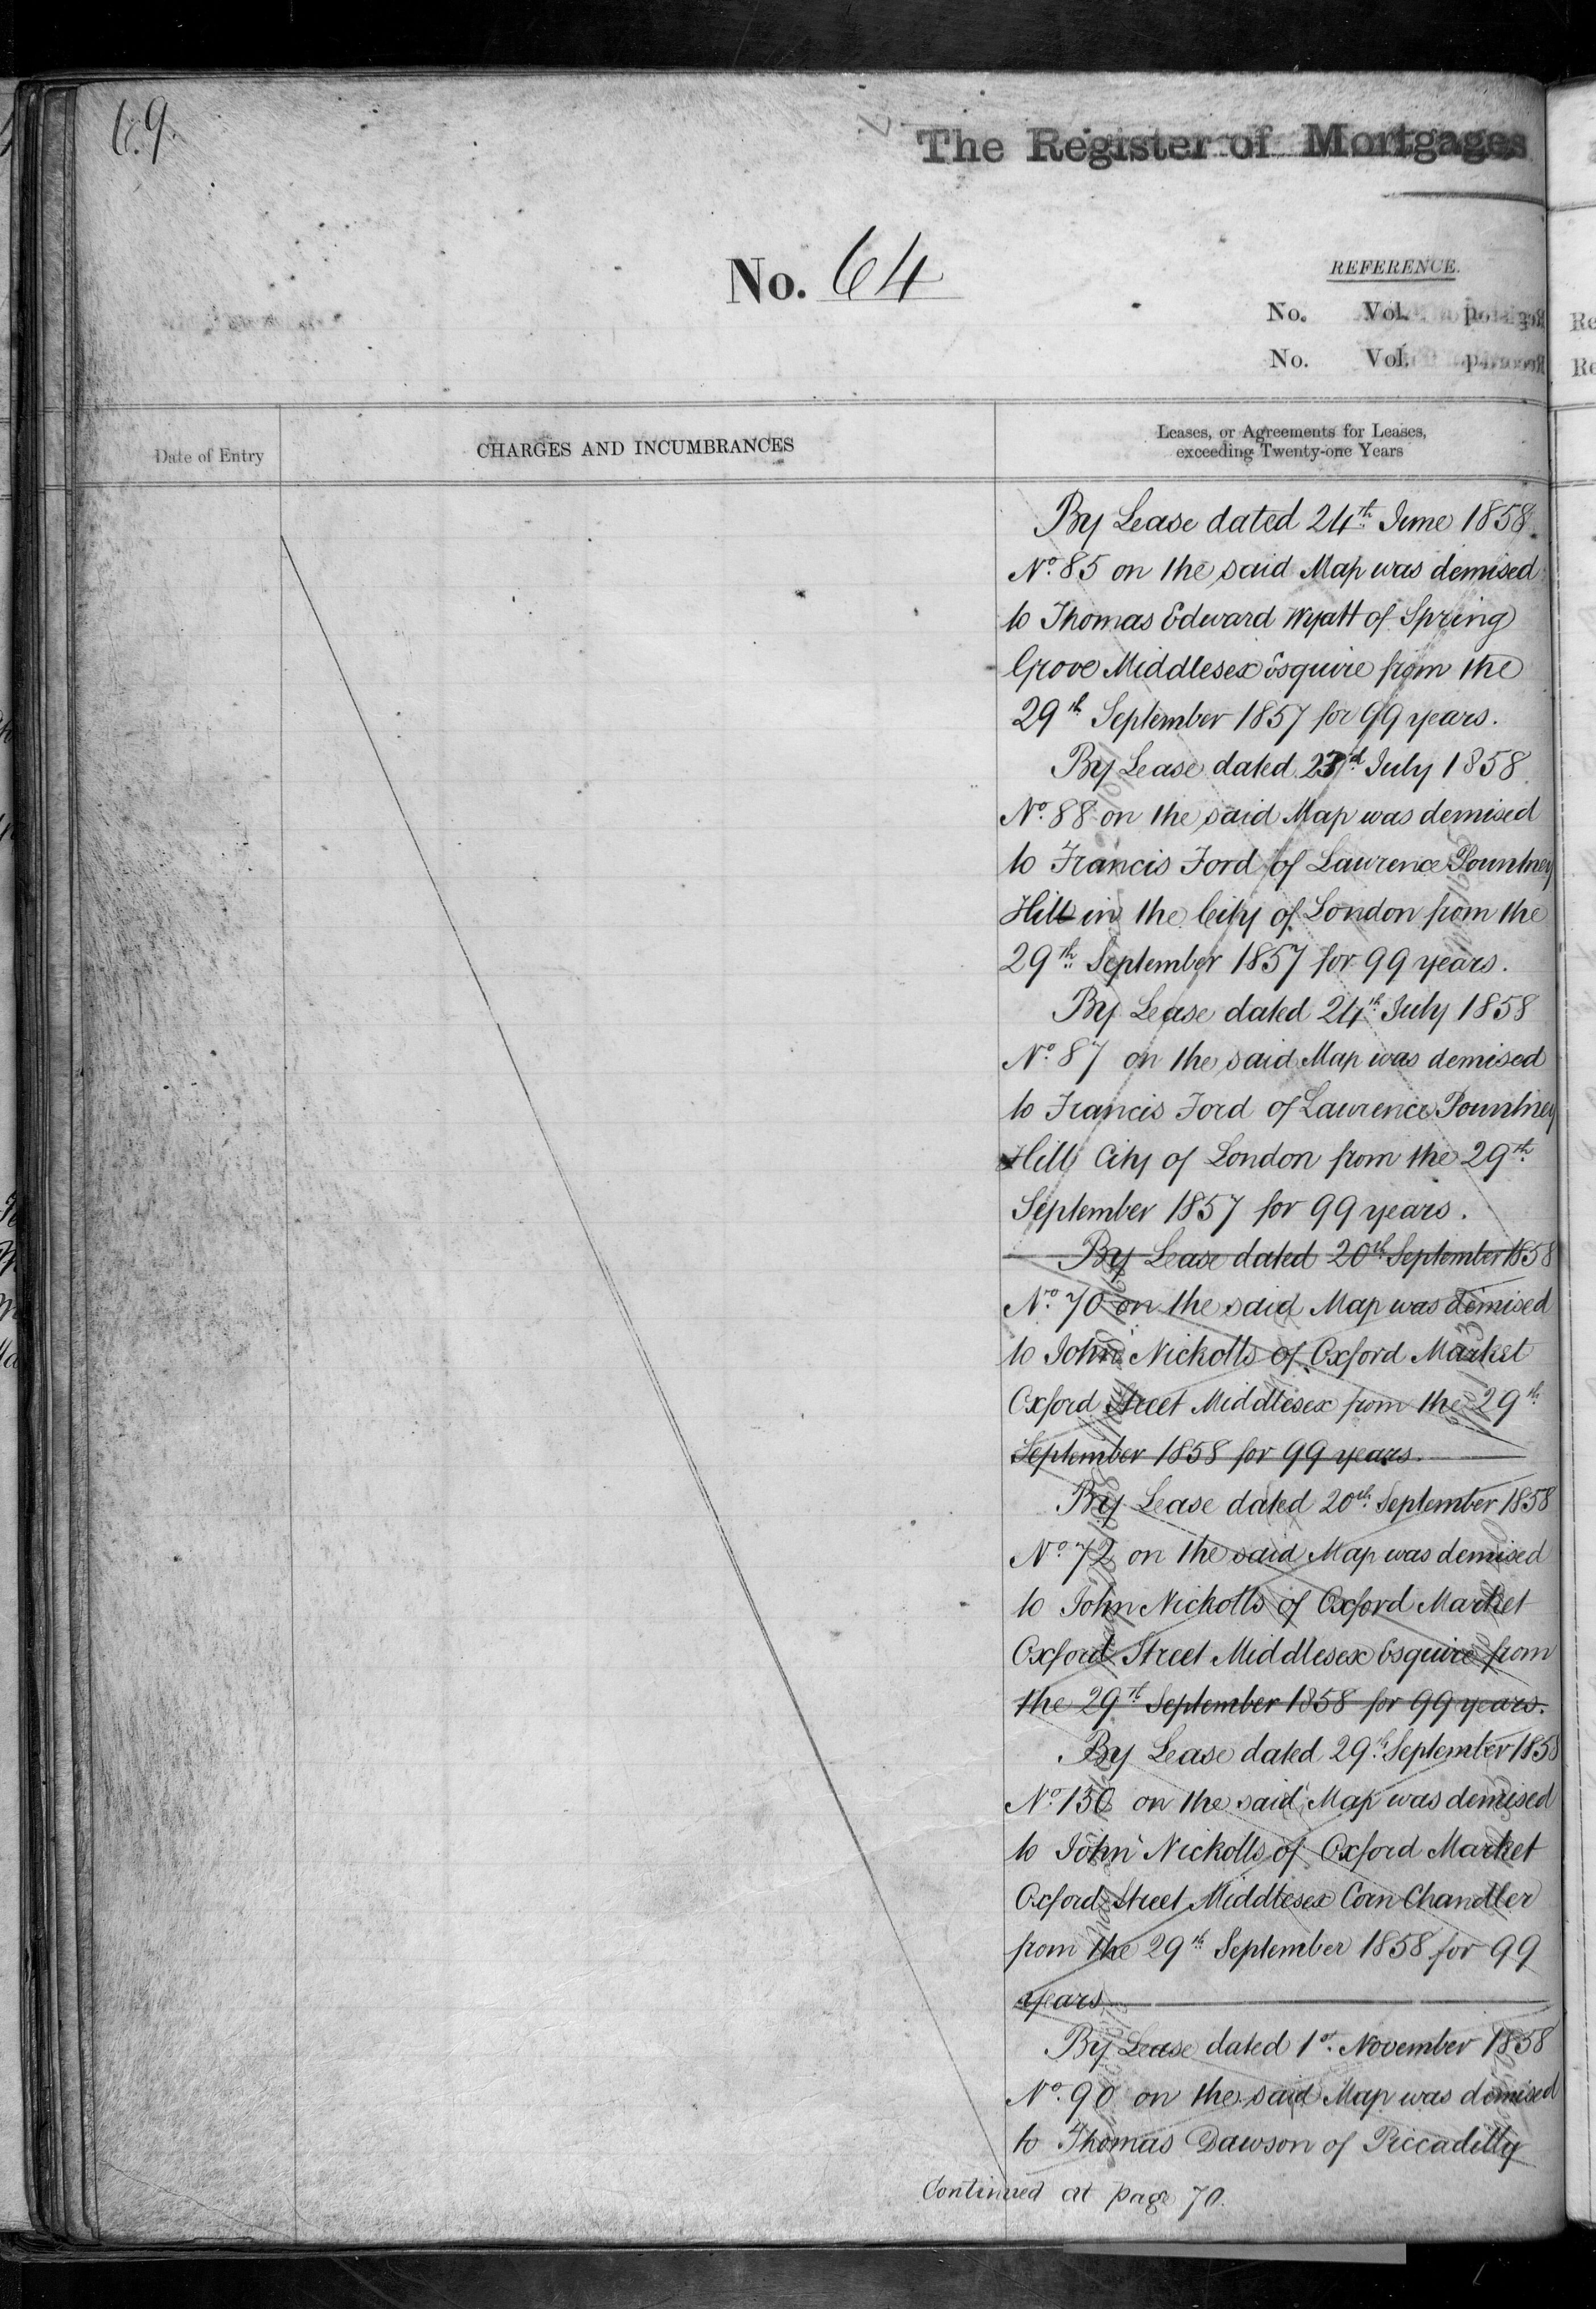 69.
The Register of Mortgages
No. 64
REFERENCE.
No. Vol.
No. Vol.
Date of Entry
CHARGES AND INCUMBRANCES
Leases, or Agreements for Leases,
exceeding Twenty-one Years
By Lease dated 24th June 1858
No. 85 on the said Map was demised
to Thomas Edward Wyatt of Spring
Grove Middlesex Esquire from the
29th September 1857 for 99 years.
By Lease dated 23d July 1858
No. 88 on the said Map was demised
to Francis Ford of Laurence Pountney
Hill in the City of London from the
29th September 1857 for 99 years.
By Lease dated 24th July 1858
No. 87 on the said Map was demised
to Francis Ford of Laurence Pountney
Hill City of London from the 29th
September 1857 for 99 years.
By Lease dated 20th September 1858
No. 70 on the said Map was demised
to John Nickolls of Oxford Market
Oxford Street Middlesex from the 29th
September 1858 for 99 years.
By Lease dated 20th September 1858
No. 72 on the said Map was demised
to John Nickolls of Oxford Market
Oxford Street Middlesex Esquire from
the 29th September 1858 for 99 years.
By Lease dated 29th September 1858
No. on the said Map was demised
to John Nickolls of Oxford Market
Oxford Street Middlesex Corn Chandler
from the 29th September 1858 for 99
years
By Lease dated 1st November 1858
No. 90 on the said Map was demised
to Thomas Dawson of Piccadilly
Continued at page 70.